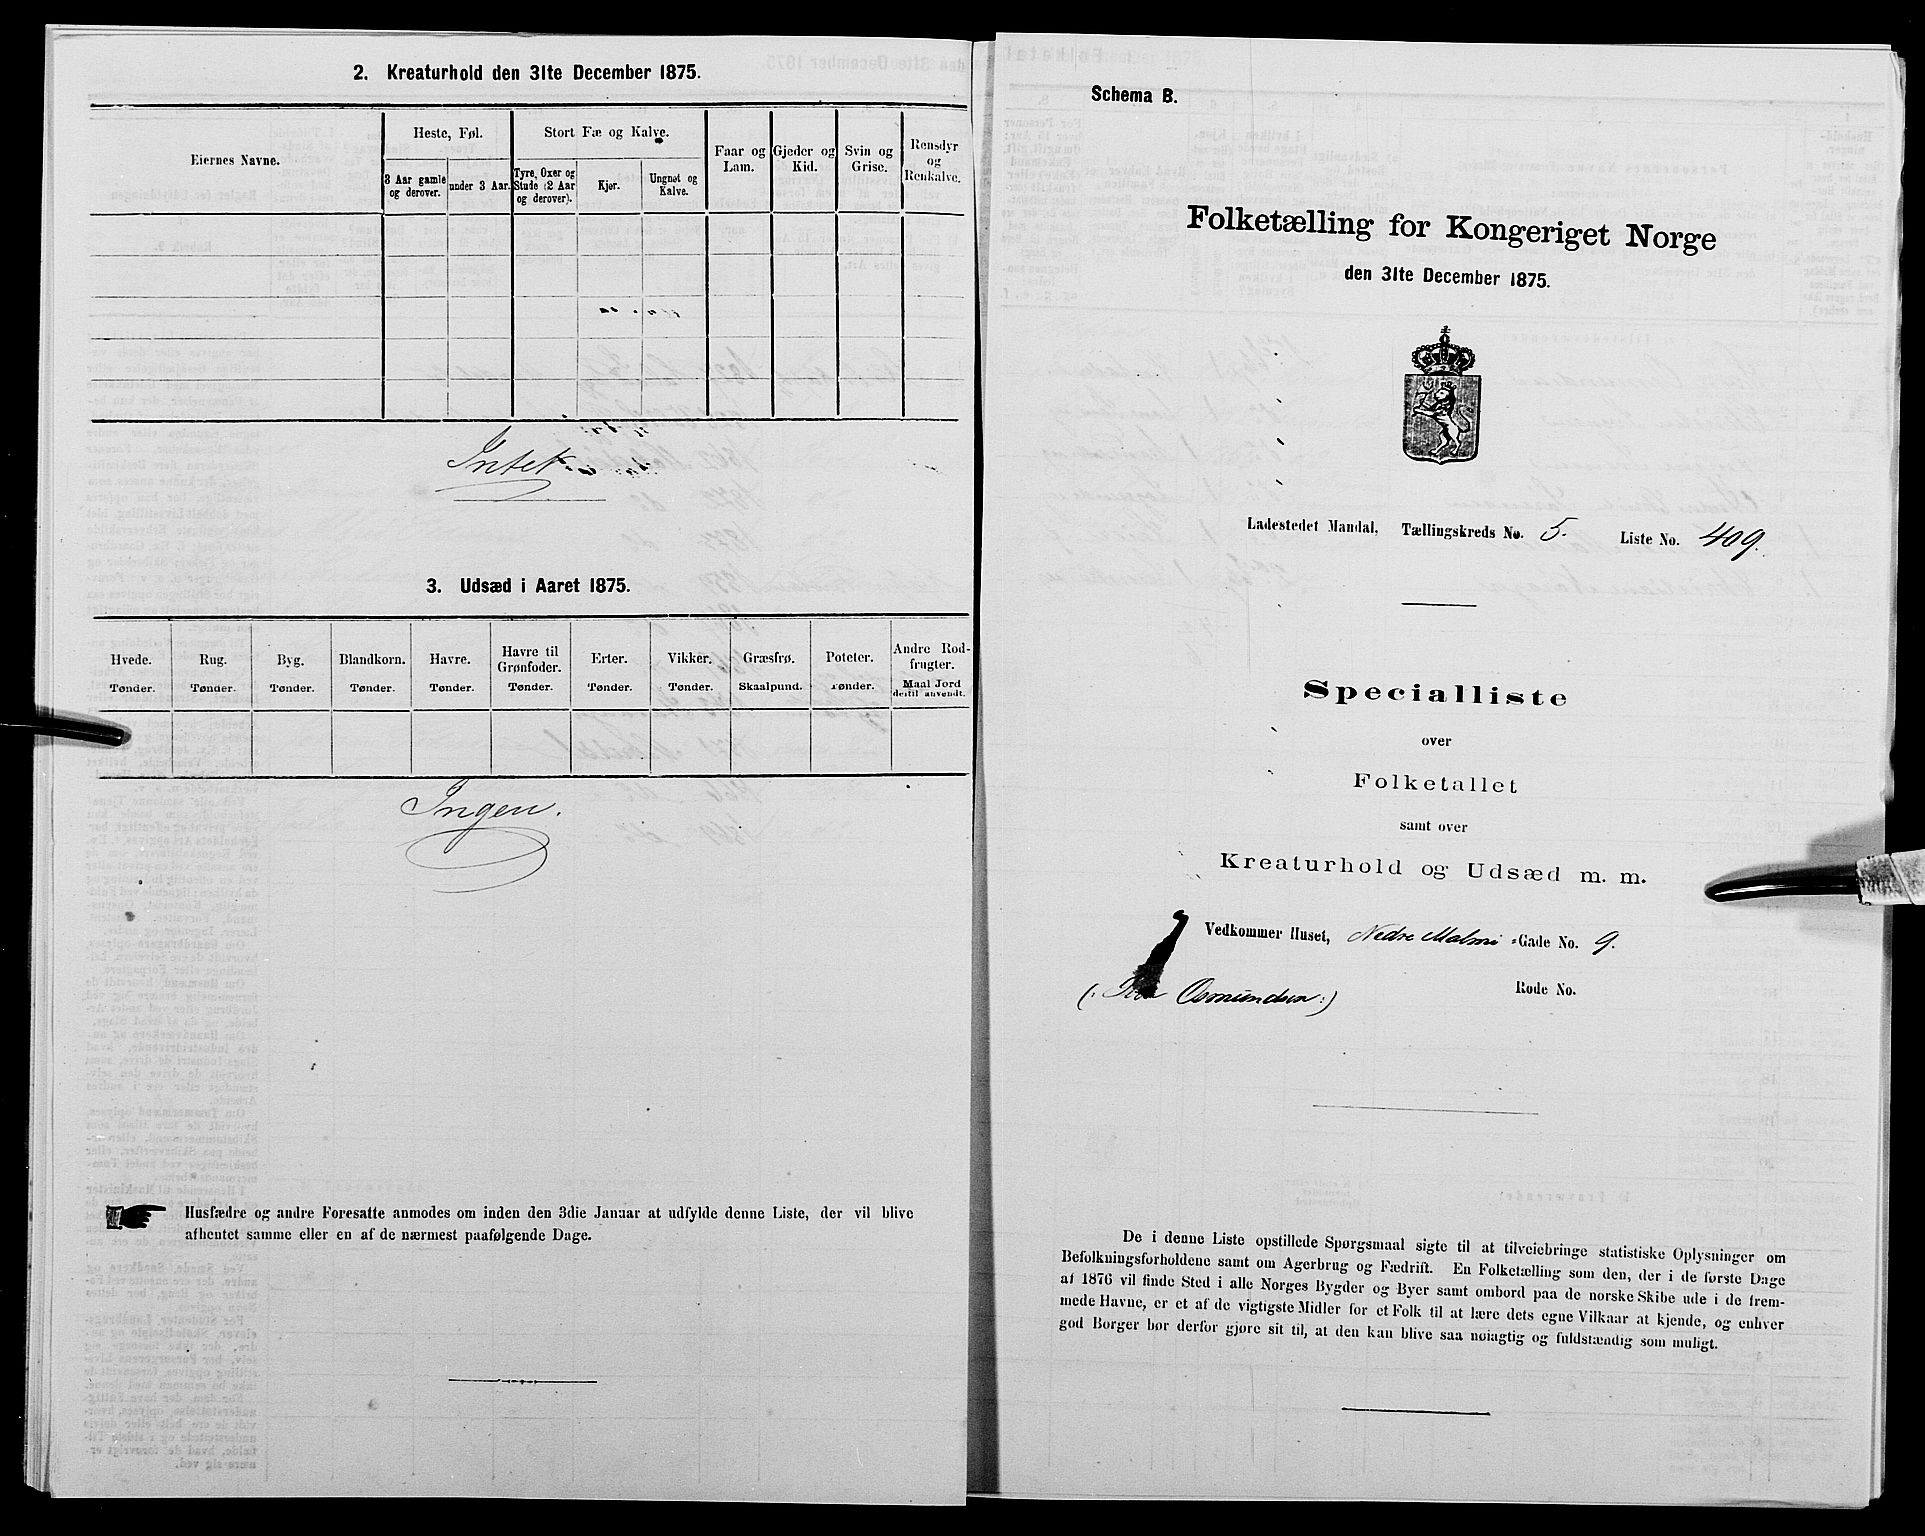 2. Kreaturhold den 31te December 1875.
Eiernes Navne.
Heste, Føl.
3 Aar gamle og derover.
under 3 Aar.
Stort Fæ og Kalve.
Tyre, Oxer og Stude (2 Aar og derover).
Kjør.
Ungnøt og Kalve.
Faar og Lam.
Gjeder og Kid.
Svin og Grise.
Rensdyr og Renkalve.
Intet
3. Udsæd i Aaret 1875.
Hvede. Tønder.
Rug. Tønder.
Byg. Tønder.
Blandkorn. Tønder.
Havre. Tønder.
Havre til Grønfoder. Tønder.
Erter. Tønder.
Vikker. Tønder.
Græsfrø. Skaalpund.
Poteter. Tønder.
Andre Rodfrugter. Maal Jord dertil anvendt.
Ingen.
Husfædre og andre Foresatte anmodes om inden den 3die Januar at udfylde denne Liste, der vil blive
afhentet samme eller en af de nærmest paafølgende Dage.
Schema B.
Folketælling for Kongeriget Norge
den 31te December 1875.
Ladestedet Mandal, Tællingskreds No. 5. Liste No. 409.
Specialliste
over
Folketallet
samt over
Kreaturhold og Udsæd m. m.
Vedkommer Huset, Nedre Malmø -Gade No. 9.
Osmundsen:)
Rode No.
De i denne Liste opstillede Spørgsmaal sigte til at tilveiebringe statistiske Oplysninger om
Befolkningsforholdene samt om Agerbrug og Fædrift. En Folketælling som den, der i de første Dage
af 1876 vil finde Sted i alle Norges Bygder og Byer samt ombord paa de norske Skibe ude i de frem-
mede Havne, er et af de vigtigste Midler for et Folk til at lære dets egne Vilkaar at kjende, og enhver
god Borger bør derfor gjøre sit til, at den kan blive saa nøiagtig og fuldstændig som muligt.